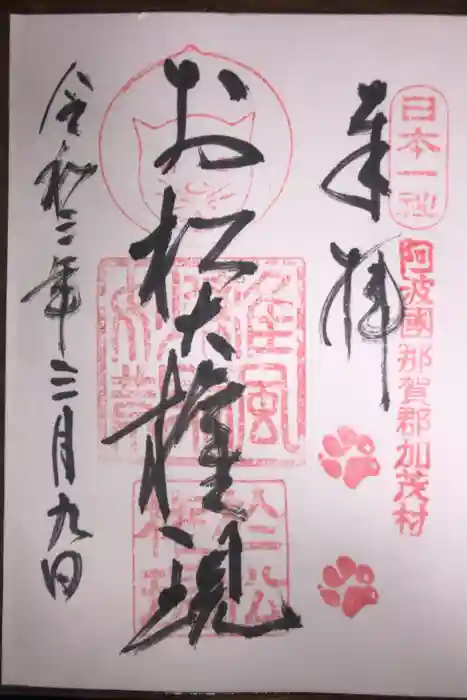 日本一社
阿波國那賀郡加茂村
奉拝
お松大権現
令和二年三月九日